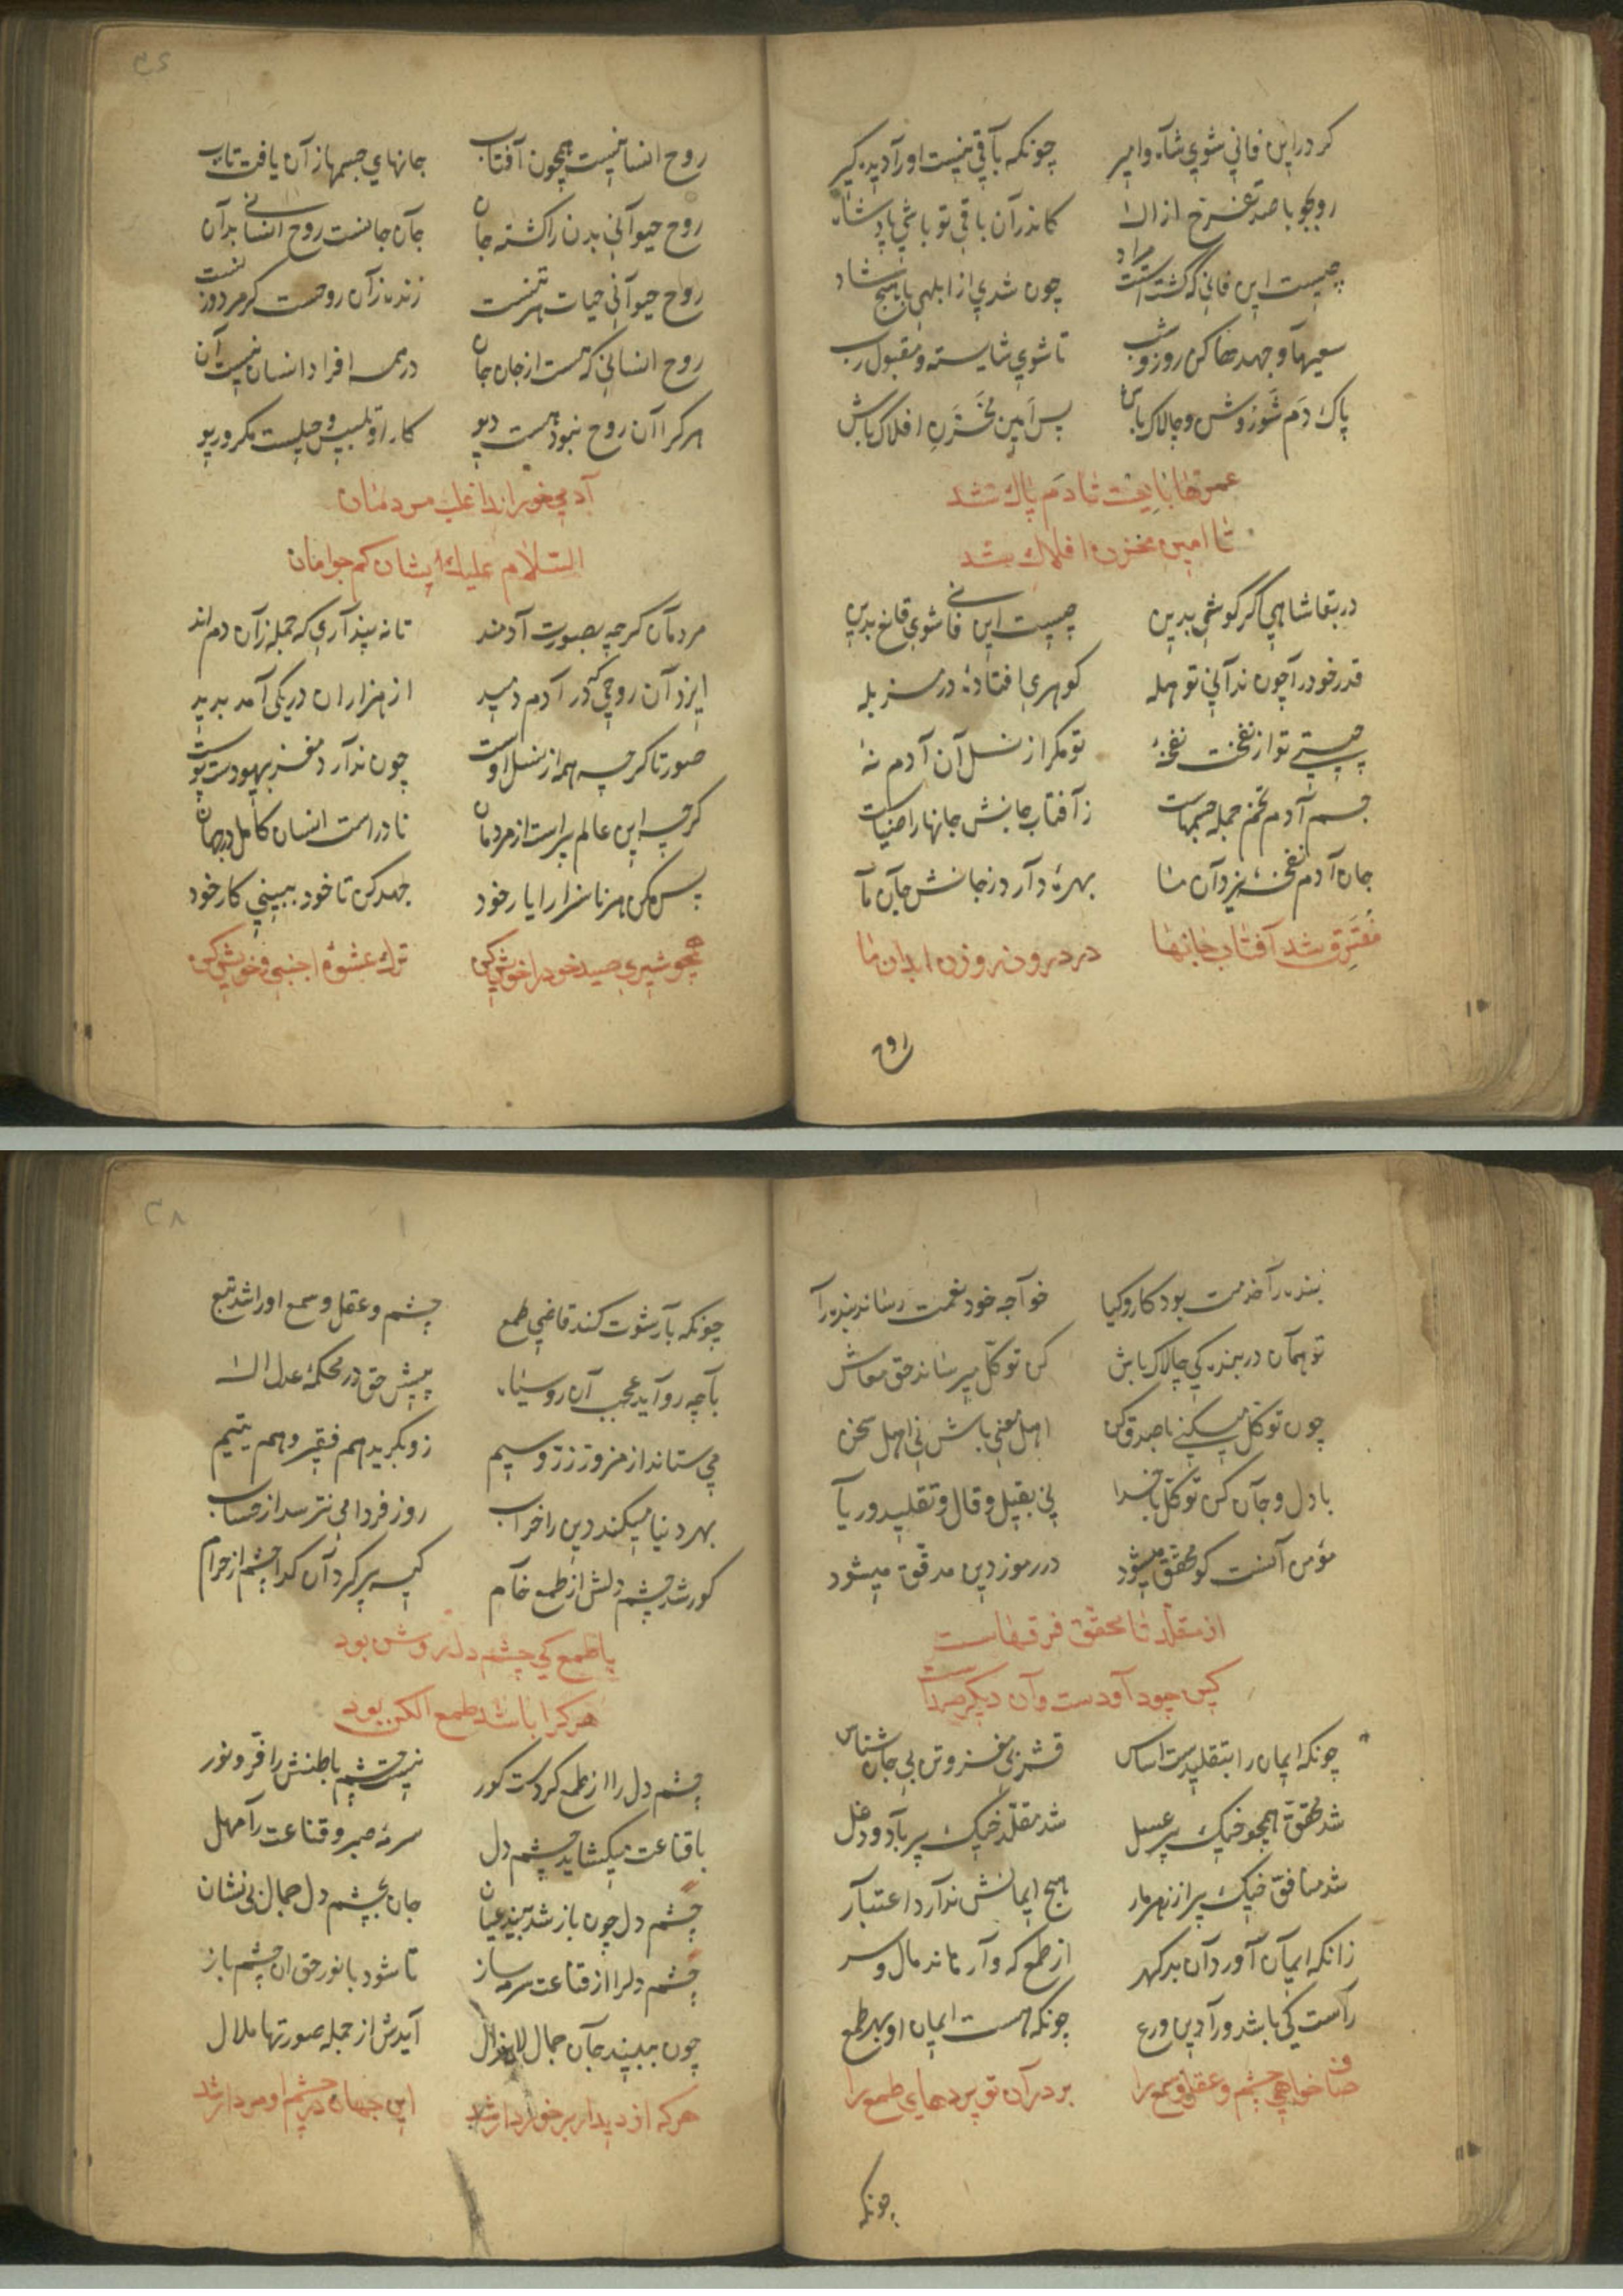 کر درین فانی شوی شاه و امیر چونکه باقی نیست او را دیده گیر
رو بجو با صد تضرع از اله کاندر آن باقی تو باشی پادشاه
چیست این فانی که گشتستت مراد چون شدی از ابلهی با هیچ شاد
سعیها و جهدها کن روز و شب تا شوی شایسته و مقبول رب
پاک دم شو زو ش و چالاک باش پس امین مخزن افلاک باش
عمرها بایست تا دم پاک شد
تا امین مخزن افلاک شد
در بقا شاهی اگر کوشی بدین چیست این فانی شوی قانع بدین
قدر خود را چون ندانی تو هله گوهری افتادهٔ در مزبله
چیستی تو از نفخت نفخهٔ تو مگر از نسل آن آدم نهٔ
جسم آدم تخم جمله جسمهاست ز آفتاب جانش جانها را ضیاست
جان آدم نفخهٔ یزدان ما بهرهٔ دارد ز جانش جان ما
مفترق شد آفتاب جانها در درون روزن ابدان ما
روح
روح انسانیست همچون آفتاب جانهای جسمها زآن یافت تاب
روح حیوانی بدن را گشته جان جان جانست روح انسانی بدان
روح حیوانی حیات هر تنست زنده زآن روحست گر مرد و زنست
روح انسانی که هست از جان جان در همه افراد انسان نیست آن
هر کرا آن روح نبود هست دیو کار او تلبیس و حیلست مکر و ریو
آدمی خوراند اغلب مردمان
السلام علیک ایشان کم جو امان
مردمان گر چه بصورت آدمند تا نه پنداری که جمله زآن دم اند
ایزد آن روحی که در آدم دمید از هزاران در یکی آمد پدید
صورتا گر چه همه از نسل اوست چون ندارد مغز بیهودست پوست
گر چه این عالم پر است از مردمان نادر است انسان کامل در جهان
پس مکن هر ناسزا را یار خود جهد کن تا خود ببینی کار خود
همچو شیری صید خود را خویش کن ترک عشوهٔ اجنبی و خویش کن
۳۸
بنده را خدمت بود کار و کیا خواجه خود نعمت رساند بنده را
تو همان در بندگی چالاک باش کن توکل میرساند حق معاش
چون توکل میکنی با صدق کن اهل معنی باش نی اهل سخن
با دل و جان کن توکل با خدا نی بقیل و قال و تقلید و ریا
مؤمن آنست کو محقق میشود در رموز دین مدقق میشود
از مقلد تا محقق فرقهاست
کین چو داودست و آن دیگر صداست
چونکه ایمان را بتقلیدست اساس قشر بی مغز و تن بی جان شناس
شد محقق همچو خیک پر عسل شد مقلد خیک پر باد و دغل
شد منافق خیک پر از زهر مار هیچ ایمانش ندارد اعتبار
زانکه ایمان آورد آن بد گهر از طمع که وارماند مال و سر
راست کی باشد ورا دین و ورع چونکه هست ایمان او بهر طمع
صاف خواهی چشم و عقل و سمع را بر دران تو پردهای طمع را
چونکه
چونکه با رشوت کند قاضی طمع چشم و عقل و سمع او را شد تبع
با چه رو آید عجب آن رو سیاه پیش حق در محکمهٔ عدل اله
می ستاند از مزور زر و سیم زو بگرید هم فقیر و هم یتیم
بهر دنیا میکند دین را خراب روز فردا می نترسد از حساب
کور شد چشم دلش از طمع خام کیسه پر کرد آن گدا چشم از حرام
با طمع کی چشم دل روشن بود
هر کرا باشد طمع الکن بود
چشم دل را از طمع کردست کور نیست چشم باطنش را فر و نور
با قناعت میگشاید چشم دل سرمهٔ صبر و قناعت را مهل
چشم دل چون باز شد بیند عیان جان بچشم دل جمال بی نشان
چشم دلرا از قناعت سرمه ساز تا شود با نور حق ان چشم باز
چون ببیند جان جمال لایزال آیدش از جمله صورتها ملال
هر که از دیدار برخوردار شد این جهان در چشم او مردار شد